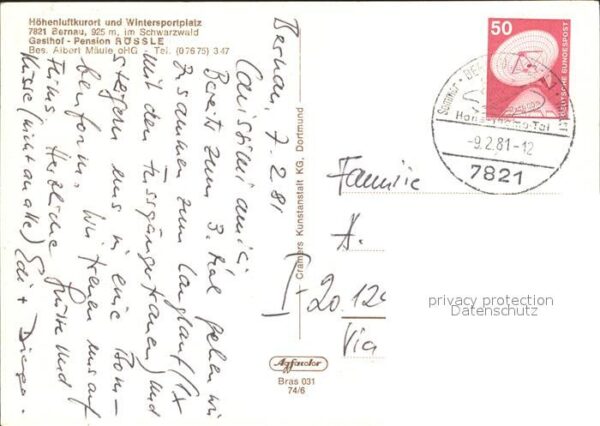 Höhenluftkurort und Wintersportplatz
7821 Bernau, 925 m, im Schwarzwald
Gasthof - Pension RÖSSLE
Bes. Albert Mäule oHG - Tel. (07675) 347
Bernau, 7.2.81
Carissimi amici,
Bereits zum 3. Mal gehen wir
zusammen zum Langlauf (1x
mit den Fussgängerfrauen) und
steigern uns in eine Bom-
benform. Wir freuen uns auf
Herzliche Grüsse und
Küsse (nicht an alle) Edi +
Cramers Kunstanstalt KG, Dortmund
Agfacolor
Bras 031
74/6
50
DEUTSCHE BUNDESPOST
Sommer
Hans-Thoma-Tal
-9.2.81-12
7821
Familie
A.
I-20124
Via
privacy protection
Datenschutz